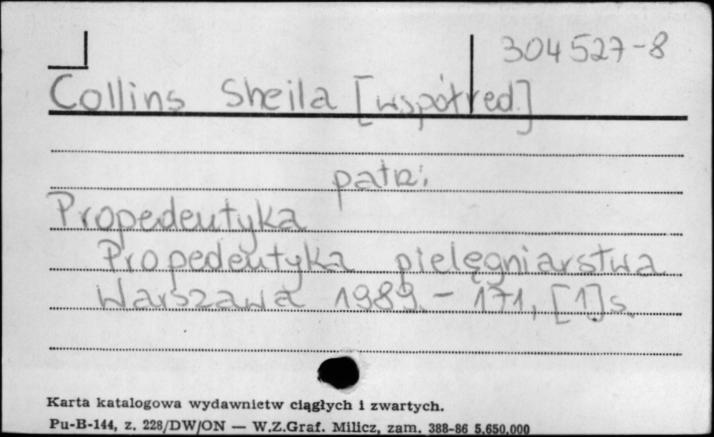 304527-8
Collins Sheila [współred.]
patrz:
Propedeutyka
Propedeutyka pielęgniarstwa
Warszawa 1989. - 171, [1] s.
Karta katalogowa wydawnictw ciągłych i zwartych.
Pu-B-144, z. 228/DW/ON — W.Z.Graf. Milicz, zam. 388-86 5.650.000